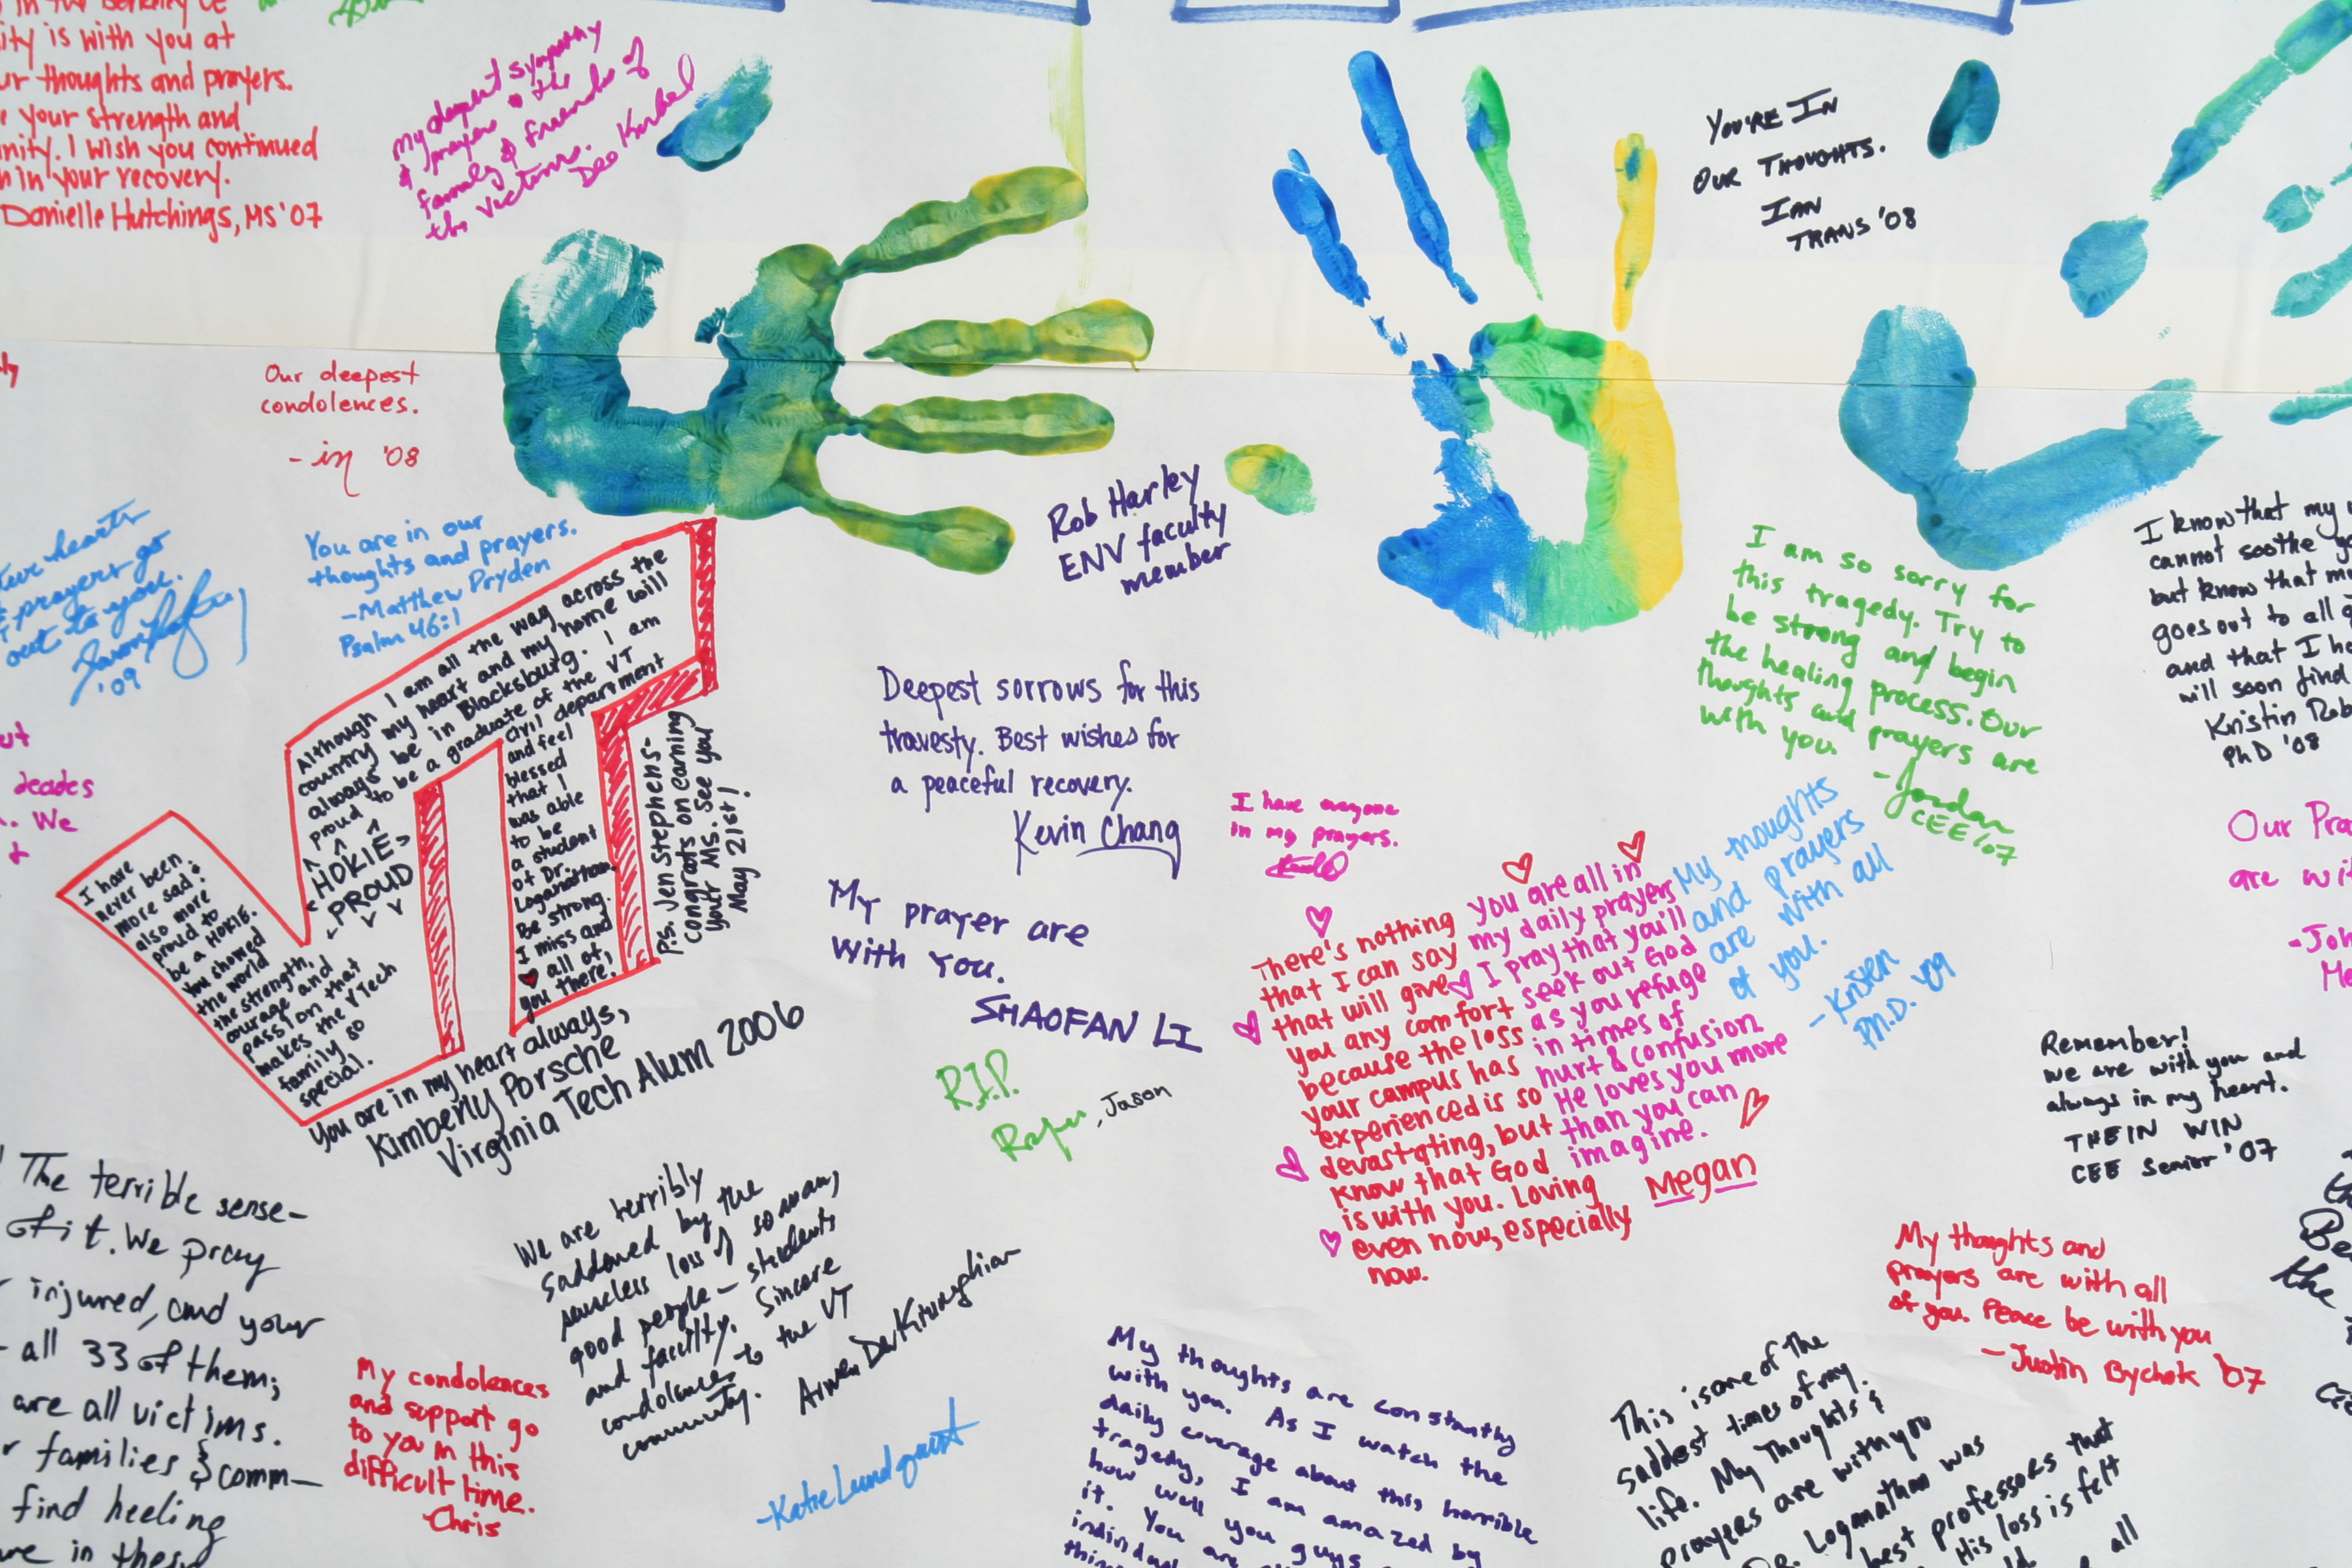 in the Berkeley CE
ity is with you at
ur thoughts and prayers.
e your strength and
nity. I wish you continued
h in your recovery.
Danielle Hutchings, MS '07
My deepest sympathy
& prayers to the
family & friends of
the victims.
Dee Korbel
YOU'RE IN
OUR THOUGHTS.
IAN
TRANS '08
Our deepest
condolences.
'08
hearts
& prayers go
out to you.
'09
You are in our
thoughts and prayers.
-Matthew Dryden
Psalm 46:1
Rob Harley
ENV faculty
member
I am so sorry for
this tragedy. Try to
be strong and begin
the healing process. Our
thoughts and prayers are
with you.
-Jordan
CEE '07
I know that my
cannot soothe
but know that my
goes out to all
and that I ho
will soon find
Kristin Rob
PhD '08
ut
decades
. We
&
I have
never been
more sad &
also more
proud to
be a HOKIE.
You showed
the world
the strength,
courage and
passion that
makes the VTech
family so
special.
Although I am all the way across the
country my heart and my home will
always be in Blacksburg. I am
proud to be a graduate of the VT
civil department
and feel
blessed
that I
was able
to be
a student
of Dr.
Loganathan.
Be strong.
I miss and
♥ all of
you there.
HOKIE
PROUD
P.S. Jen Stephens-
congrats on earning
your MS. See you
May 21st!
You are in my heart always,
Kimberly Porsche
Virginia Tech Alum 2006
Deepest sorrows for this
travesty. Best wishes for
a peaceful recovery.
Kevin Chang
I have everyone
in my prayers.
My prayer are
with you.
SHAOFAN LI
R.I.P.
Jason
There's nothing
that I can say
that will give
you any comfort
because the loss
your campus has
experienced is so
devastating, but
know that God
is with you. Loving
even now, especially
now.
you are all in
my daily prayers
I pray that you'll
seek out God
as you refuge
in times of
hurt & confusion
He loves you more
than you can
imagine.
Megan
My thoughts
and prayers
are with all
of you.
-Kristen
Ph.D. '09
Our Pra
are wit
-Joh
Me
Remember!
we are with you and
always in my heart.
THEIN WIN
CEE Senior '07
The terrible sense-
of it. We pray
injured, and your
- all 33 of them;
are all victims.
r families & comm-
find heeling
in these
My condolences
and support go
to you in this
difficult time.
Chris
We are terribly
saddened by the
senseless loss of so many
good people - students
and faculty. Sincere
condolences to the VT
community.
Armen Der Kiureghian
-Katie Lundquist
My thoughts are constantly
with you. As I watch the
daily coverage about this horrible
tragedy, I am amazed by
how well you guys
it. You are
My thoughts and
prayers are with all
of you. Peace be with you
-Justin Bychek '07
This is one of the
saddest times of my
life. My Thoughts &
prayers are with you
Dr. Loganathan was
best professors that
His loss is felt
all
Be
the